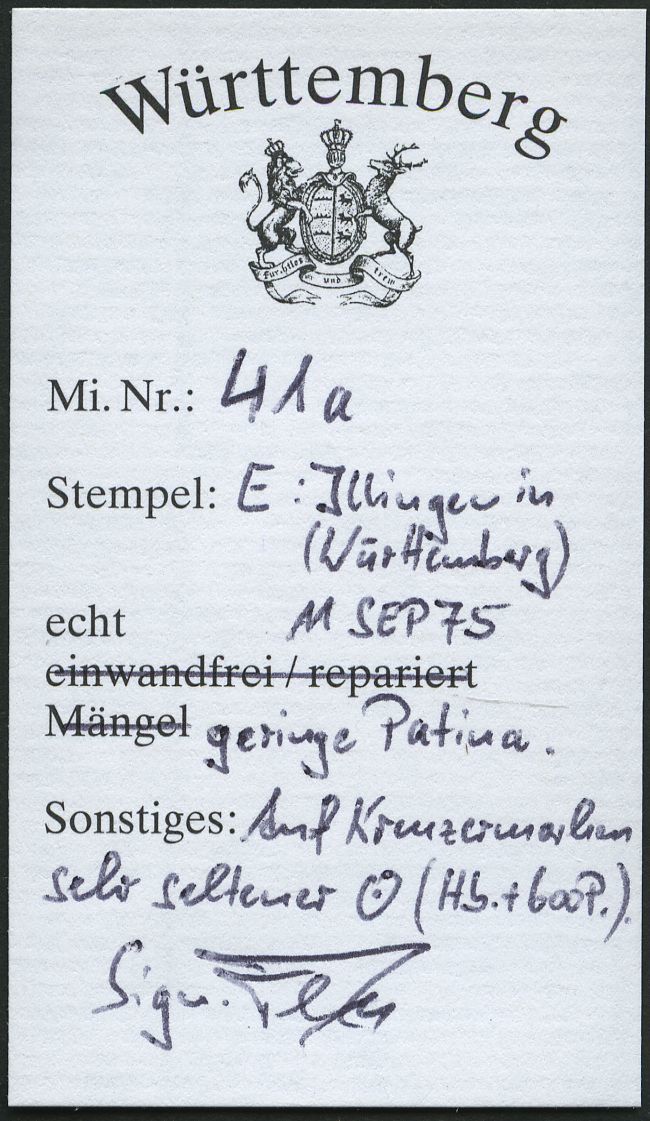 Württemberg
Furchtlos und trew
Mi. Nr.: 41a
Stempel: E: Illingen in
(Württemberg)
echt 11 SEP 75
einwandfrei / repariert
Mängel geringe Patina.
Sonstiges: Auf Kreuzermarken
sehr seltener ⊙ (Hb. + 600P.).
Sign.